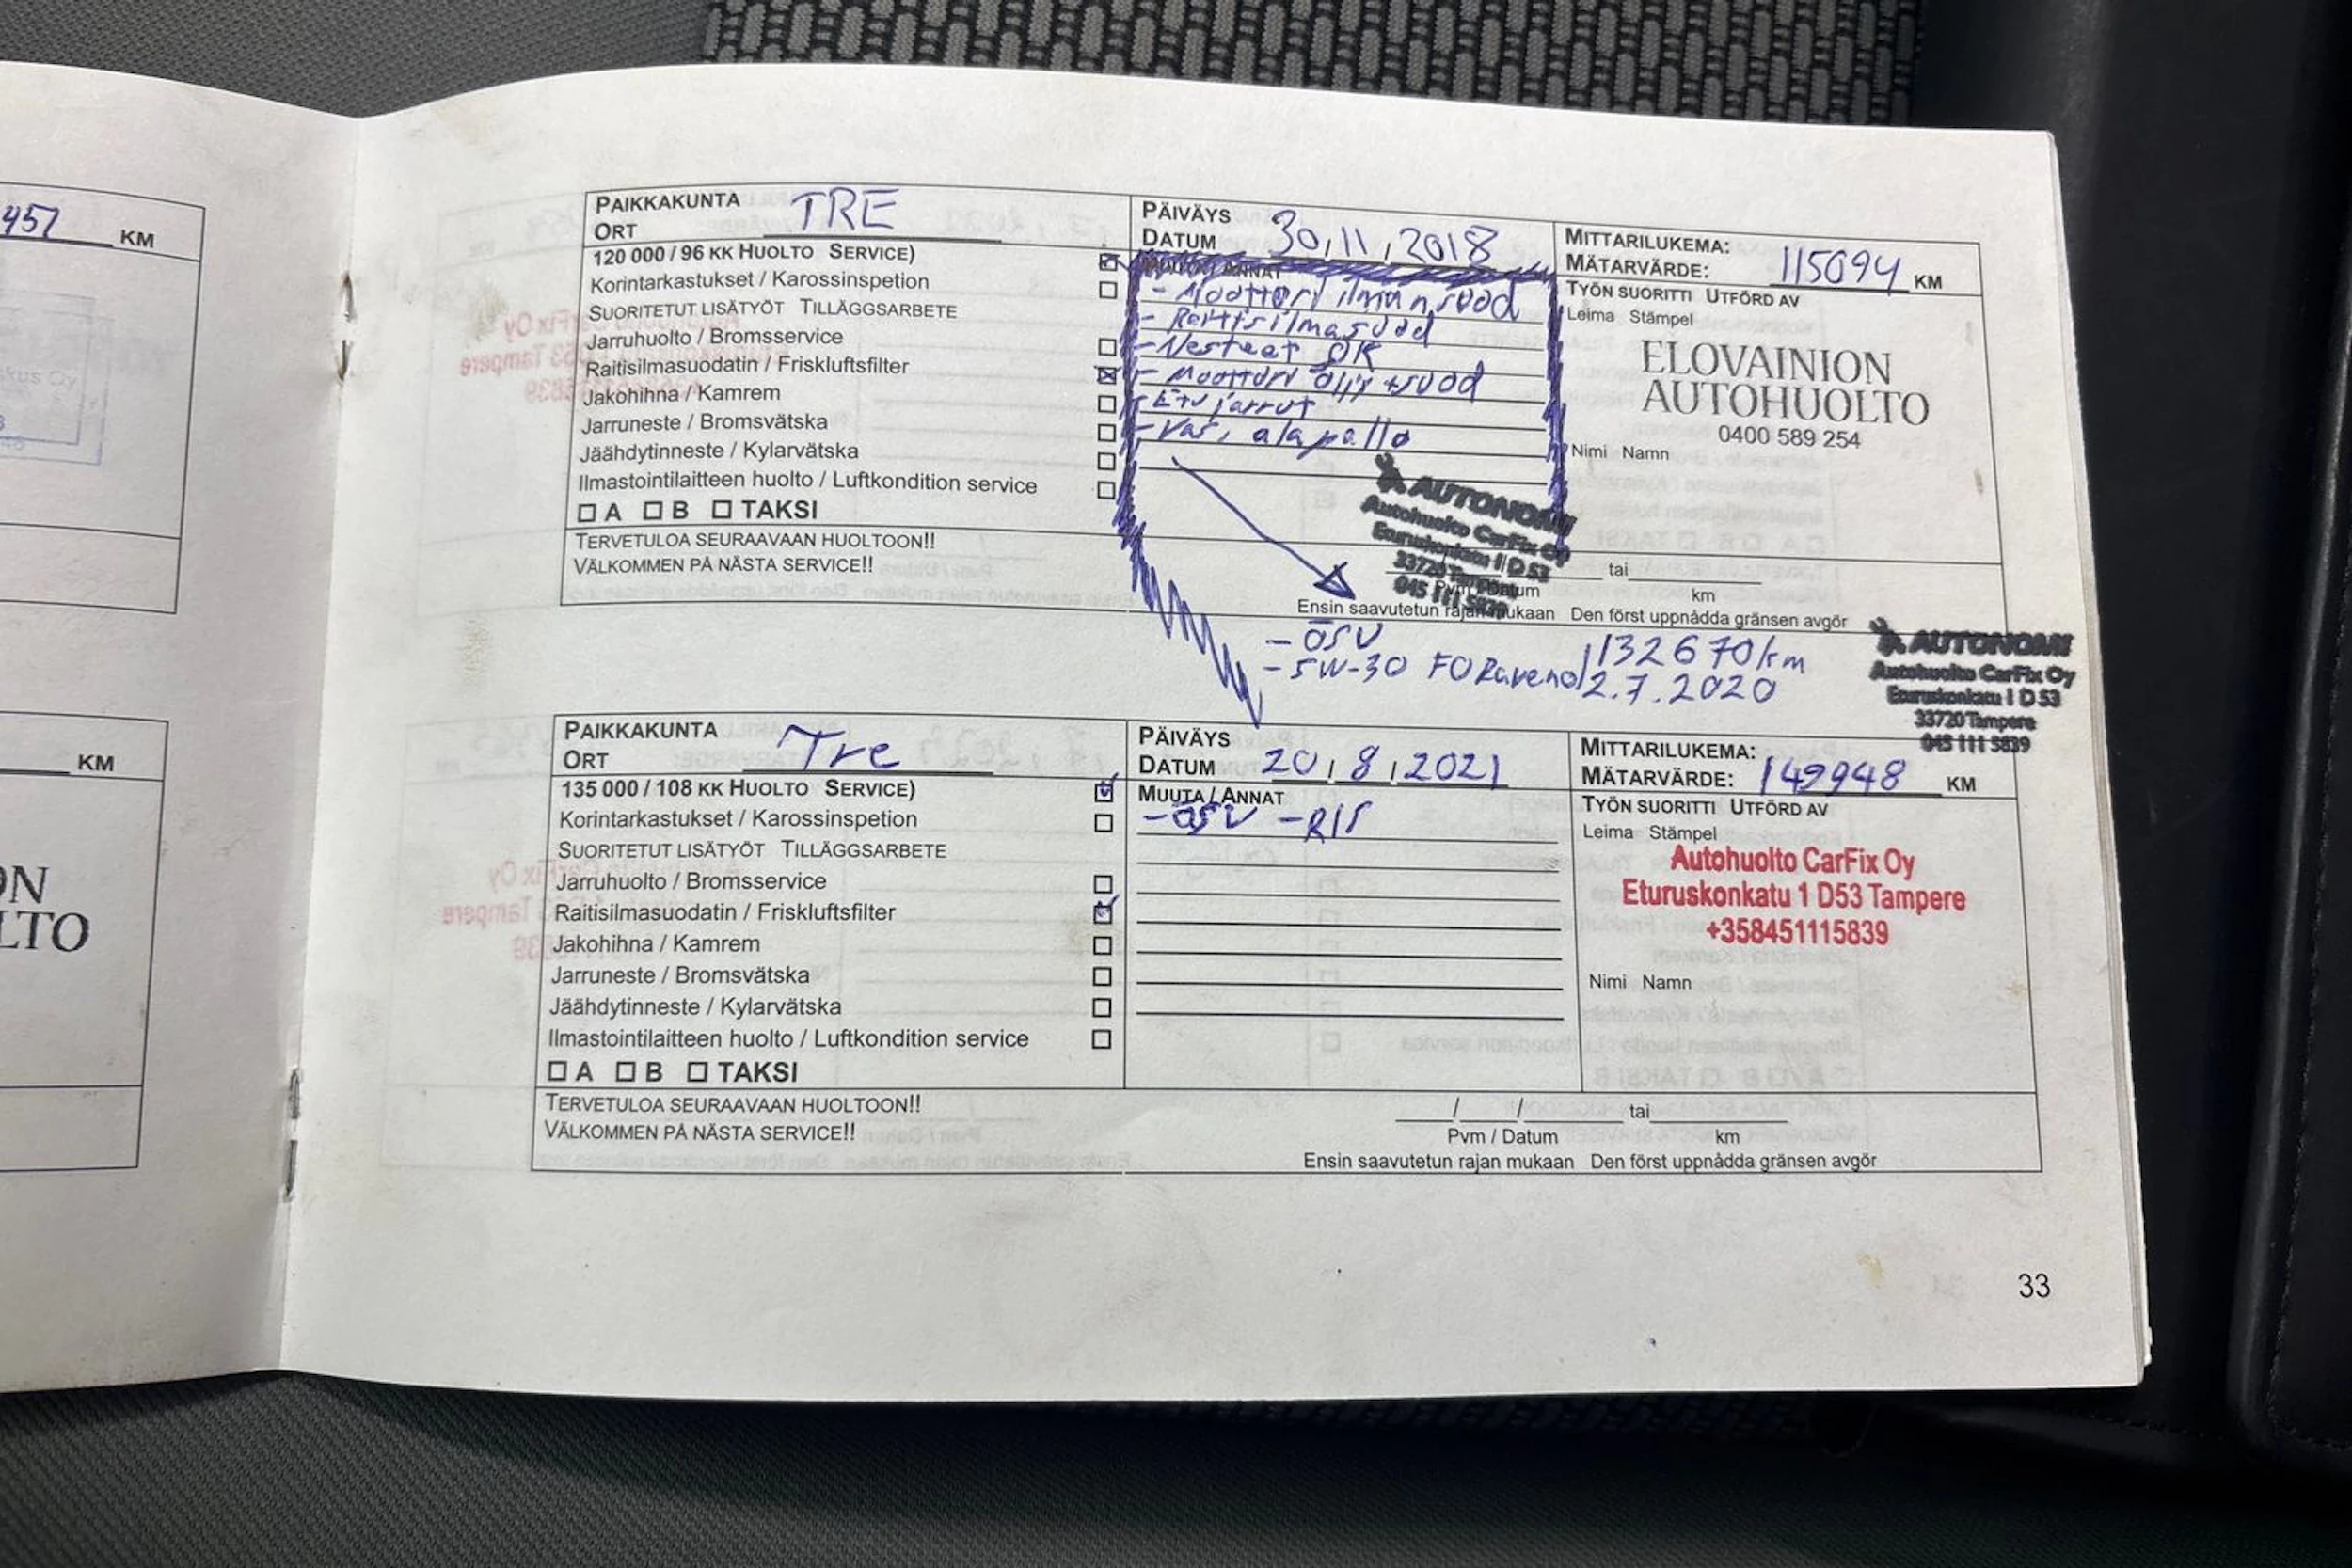 457 KM
KM
PAIKKAKUNTA
ORT TRE
PÄIVÄYS
DATUM 30, 11, 2018
MITTARILUKEMA:
MÄTARVÄRDE: 115094 KM
120 000 / 96 KK HUOLTO SERVICE)
Korintarkastukset / Karossinspetion
SUORITETUT LISÄTYÖT TILLÄGGSARBETE
Jarruhuolto / Bromsservice
Raitisilmasuodatin / Friskluftsfilter
Jakohihna / Kamrem
Jarruneste / Bromsvätska
Jäähdytinneste / Kylarvätska
Ilmastointilaitteen huolto / Luftkondition service
A B TAKSI
ANNAT
- Moottori ilman suod
- Raitisilmasuod
- Nesteet OK
- Moottori öljy + suod
- Etu jarrut
- Vas. alapallo
TYÖN SUORITTI UTFÖRD AV
Leima Stämpel
ELOVAINION
AUTOHUOLTO
0400 589 254
Nimi Namn
AUTONOMI
Autohuolto CarFix Oy
Eturuskonkatu 1 D 53
33720 Tampere
045 111 5839
TERVETULOA SEURAAVAAN HUOLTOON!!
VÄLKOMMEN PÅ NÄSTA SERVICE!!
tai
Pvm / Datum km
Ensin saavutetun rajan mukaan Den först uppnådda gränsen avgör
- ÖSV
- 5W-30 FO Ravenol
132670 km
2.7.2020
AUTONOMI
Autohuolto CarFix Oy
Eturuskonkatu 1 D 53
33720 Tampere
045 111 5839
PAIKKAKUNTA
ORT Tre
PÄIVÄYS
DATUM 20, 8, 2021
MITTARILUKEMA:
MÄTARVÄRDE: 149948 KM
135 000 / 108 KK HUOLTO SERVICE)
Korintarkastukset / Karossinspetion
SUORITETUT LISÄTYÖT TILLÄGGSARBETE
Jarruhuolto / Bromsservice
Raitisilmasuodatin / Friskluftsfilter
Jakohihna / Kamrem
Jarruneste / Bromsvätska
Jäähdytinneste / Kylarvätska
Ilmastointilaitteen huolto / Luftkondition service
A B TAKSI
MUUTA / ANNAT
- ÖSV - RIS
TYÖN SUORITTI UTFÖRD AV
Leima Stämpel
Autohuolto CarFix Oy
Eturuskonkatu 1 D53 Tampere
+358451115839
Nimi Namn
TERVETULOA SEURAAVAAN HUOLTOON!!
VÄLKOMMEN PÅ NÄSTA SERVICE!!
/ / tai
Pvm / Datum km
Ensin saavutetun rajan mukaan Den först uppnådda gränsen avgör
33